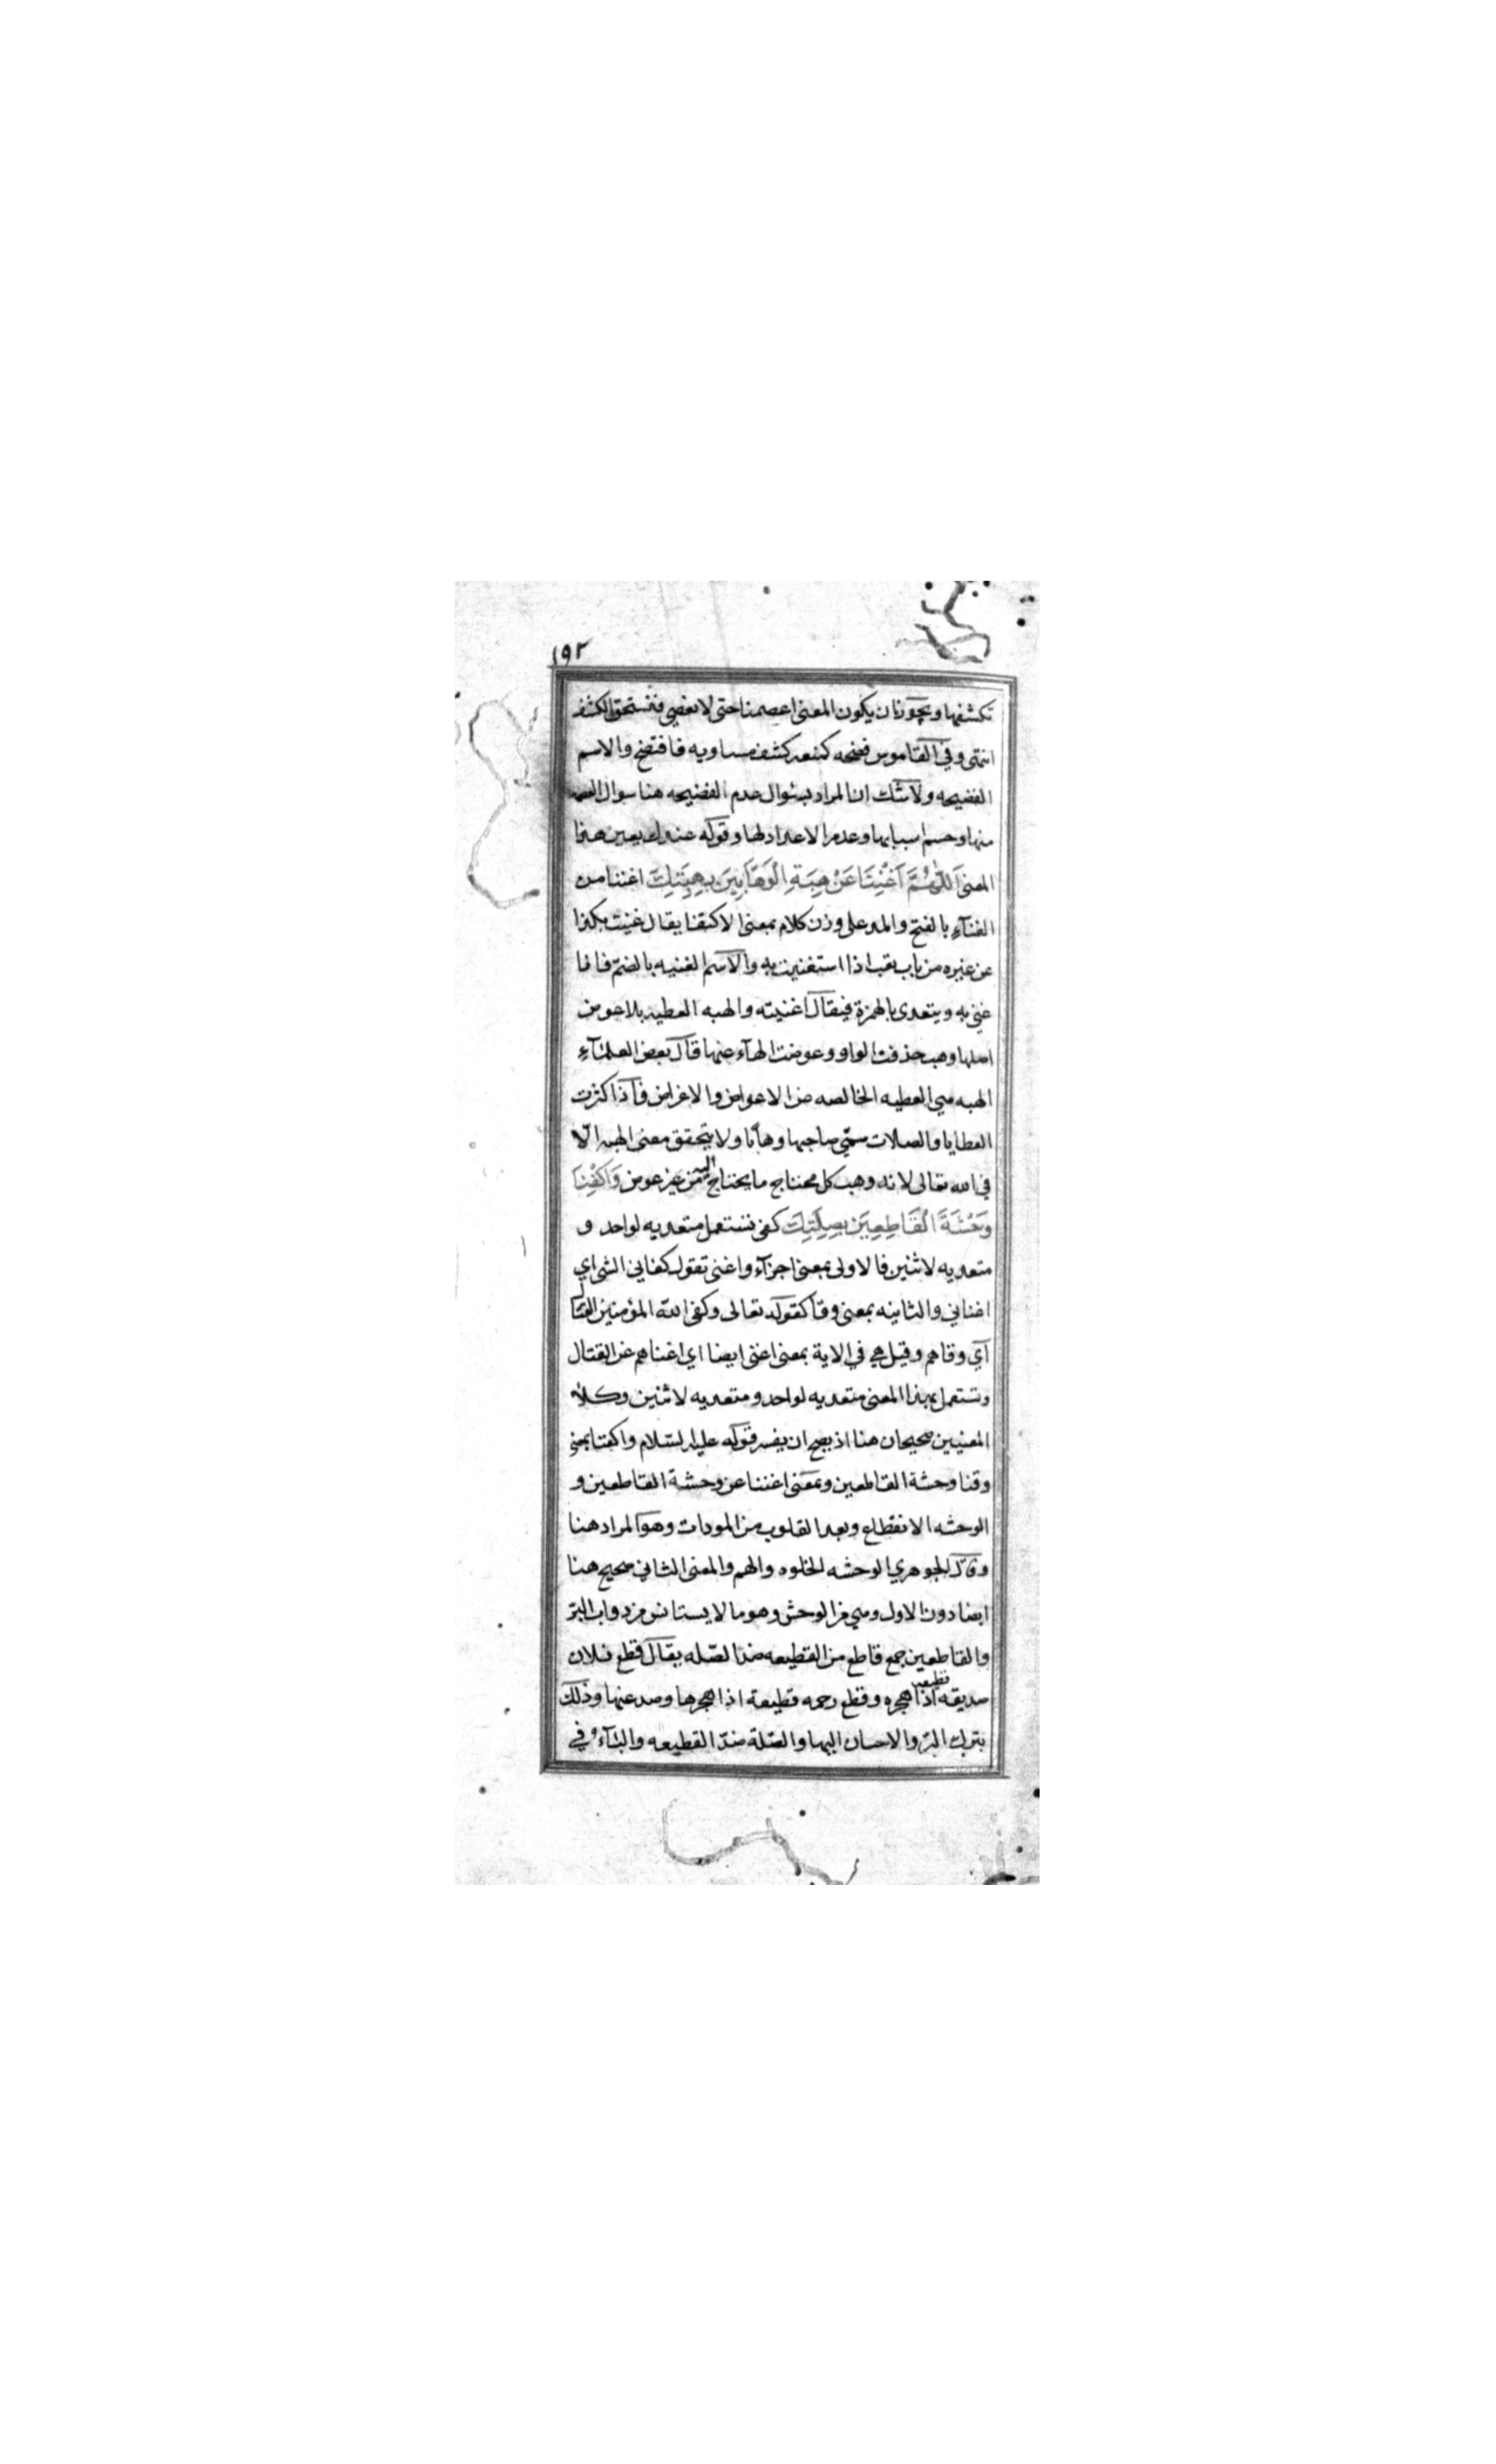 ١٩٢
تكشفها ويجوز ان يكون المعنى اعصمنا حتى لا نعصي فنستحق الكشف
انتهى وفي القاموس فضحه كمنعه كشف مساويه فافتضح والاسم
الفضيحه ولا شك ان المراد بسؤال عدم الفضيحه هنا سوال
منها وحسم اسبابها وعدم الاعداد لها وقوله عندك يعين هذا
المعنى اَللّٰهُمَّ اَغْنِنَا عَنْ هِبَةِ الْوَهَّابِينَ بِهِبَتِكَ اغننا من
الغنآء بالفتح والمد على وزن كلام بمعنى الاكتفا يقال غنيت بكذا
عن غيره من باب تعب اذا استغنيت به والاسم الغنيه بالضم فانا
غني به ويتعدى بالهمزة فيقال اغنيته والهبه العطيه بلا عوض
اصلها وهب حذفت الواو وعوضت الهآء عنها قال بعض العلمآء
الهبه هي العطيه الخالصه من الاعواض والاغراض فاذا كثرت
العطايا والصلات سمّي صاحبها وهّابا ولا يتحقق معنى الهبه الّا
في الله تعالى لانه وهب كل محتاج ما يحتاج اليه من غير عوض وَاكْفِنَا
وَحْشَةَ الْقَاطِعِيَن بِصِلَتِكَ كفى تستعمل متعديه لواحد و
متعديه لاثنين فالاولى بمعنى اجزآء واغنى تقول كفاني الشى اي
اغناني والثانيه بمعنى وقا كقوله تعالى وكفى الله المؤمنين القتال
آي وقاهم وقيل هي في الاية بمعنى اغنى ايضا اي اغناهم عن القتال
وتستعمل بهذا المعنى متعديه لواحد ومتعديه لاثنين وكلا
المعنيين صحيحان هنا اذ يصح ان يفسر قوله عليه السّلام واكفنا بمعنى
وقنا وحشة القاطعين وبمعنى اغننا عن وحشة القاطعين و
الوحشه الانقطاع وبعد القلوب من المودات وهو المراد هنا
وقال الجوهري الوحشه الخلوه والهم والمعنى الثاني صحيح هنا
ايضا دون الاول وهي من الوحش وهو ما لا يستانس من دواب البرّ
والقاطعين جمع قاطع من القطيعه ضد الصّله يقال قطع فلان
صديقه قطيعه اذا هجره وقطع رحمه قطيعة اذا هجرها وصد عنها وذلك
بترك البرّ والاحسان اليها والصّلة ضدّ القطيعه والبآء في